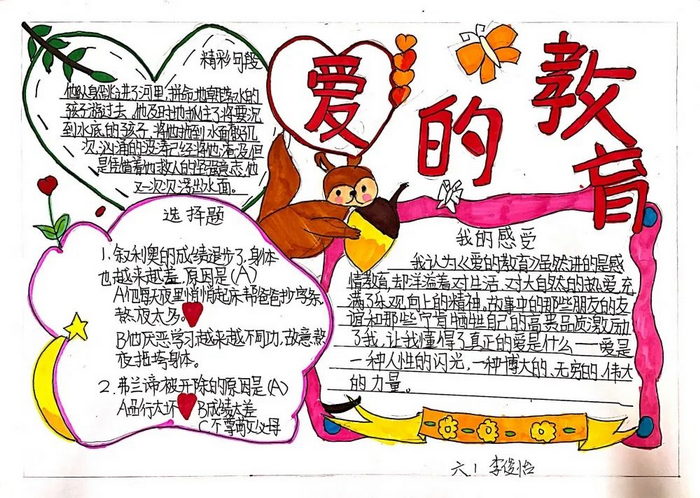 爱的教育
精彩句段
他纵身跳进了河里,拼命地朝落水的
孩子游过去,他及时地抓住了将要沉
到水底的孩子,将他拖到水面
次,汹涌的波涛已经将他淹没,但
是凭借着他救人的坚强意志,他
又一次次浮出水面。
选择题
1.叙利奥的成绩退步了,身体
也越来越差,原因是(A)
A他每天夜里悄悄起床帮爸爸抄字条,
熬夜太多。
B他厌恶学习越来越不用功,故意熬
夜拖垮身体。
2.弗兰谛被开除的原因是(A)
A品行太坏 B成绩太差
C不尊敬父母
我的感受
我认为《爱的教育》虽然讲的是感
情教育,却洋溢着对生活、对大自然的热爱,充
满了乐观向上的精神。故事中的那些朋友的友
谊和那些宁肯牺牲自己的高尚品质激励
了我,让我懂得了真正的爱是什么——爱是
一种人性的闪光,一种博大的、无穷的、伟大
的力量。
六1 李俊怡